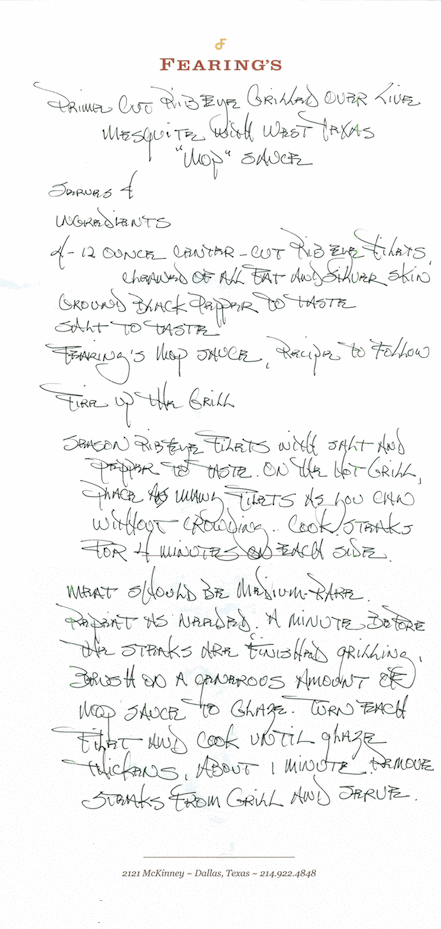 FEARING'S
Prime Cut Rib Eye Grilled Over Live
Mesquite with West Texas
"Mop" Sauce
Serves 4
Ingredients
4 - 12 ounce center-cut Rib Eye filets,
cleaned of all fat and silver skin
Ground Black Pepper to taste
Salt to taste
Fearing's Mop Sauce, Recipe to Follow
Fire up the Grill
Season Rib Eye filets with salt and
pepper to taste. On the hot grill,
place as many filets as you can
without crowding. Cook steaks
for 4 minutes on each side.
Meat should be medium-rare.
Repeat as needed. A minute before
the steaks are finished grilling,
brush on a generous amount of
mop sauce to glaze. Turn each
filet and cook until glaze
thickens, about 1 minute. Remove
steaks from grill and serve.
2121 McKinney ~ Dallas, Texas ~ 214.922.4848